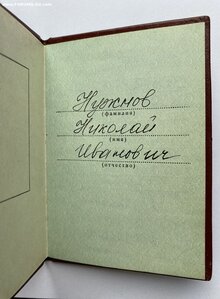 Нужнов
(фамилия)
Николай
(имя)
Иванович
(отчество)